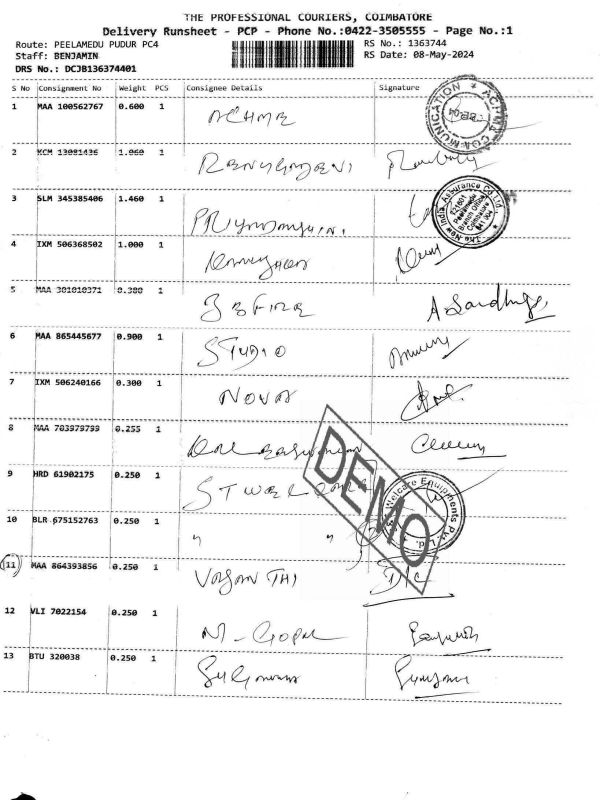 THE PROFESSIONAL COURIERS, COIMBATORE
Delivery Runsheet - PCP - Phone No.:0422-3505555 - Page No.:1
Route: PEELAMEDU PUDUR PC4
RS No.: 1363744
Staff: BENJAMIN
RS Date: 08-May-2024
DRS No.: DCJB136374401
S No Consignment No Weight PCS Consignee Details Signature
1 MAA 100562767 0.600 1 ACHME
ACHMA COMMUNICATION
2 KCM 13081436 1.060 1
3 SLM 345385406 1.460 1 PRIYADARSHINI
The New India Assurance Co. Ltd.
721601
Peelamedu
Branch Office
Coimbatore
641 004
4 IXM 506368502 1.000 1
5 MAA 301010371 0.380 1 3 B FIRE
6 MAA 865445677 0.900 1 STUDIO
7 IXM 506240166 0.300 1 NOVA
8 MAA 703979799 0.255 1
9 HRD 61902175 0.250 1 ST WELCARE
Welcare Equipments Pvt. Ltd.
10 BLR 675152763 0.250 1 " "
DEMO
11 MAA 864393856 0.250 1 VASANTHI
12 VLI 7022154 0.250 1 M-GOPAL
13 BTU 320038 0.250 1